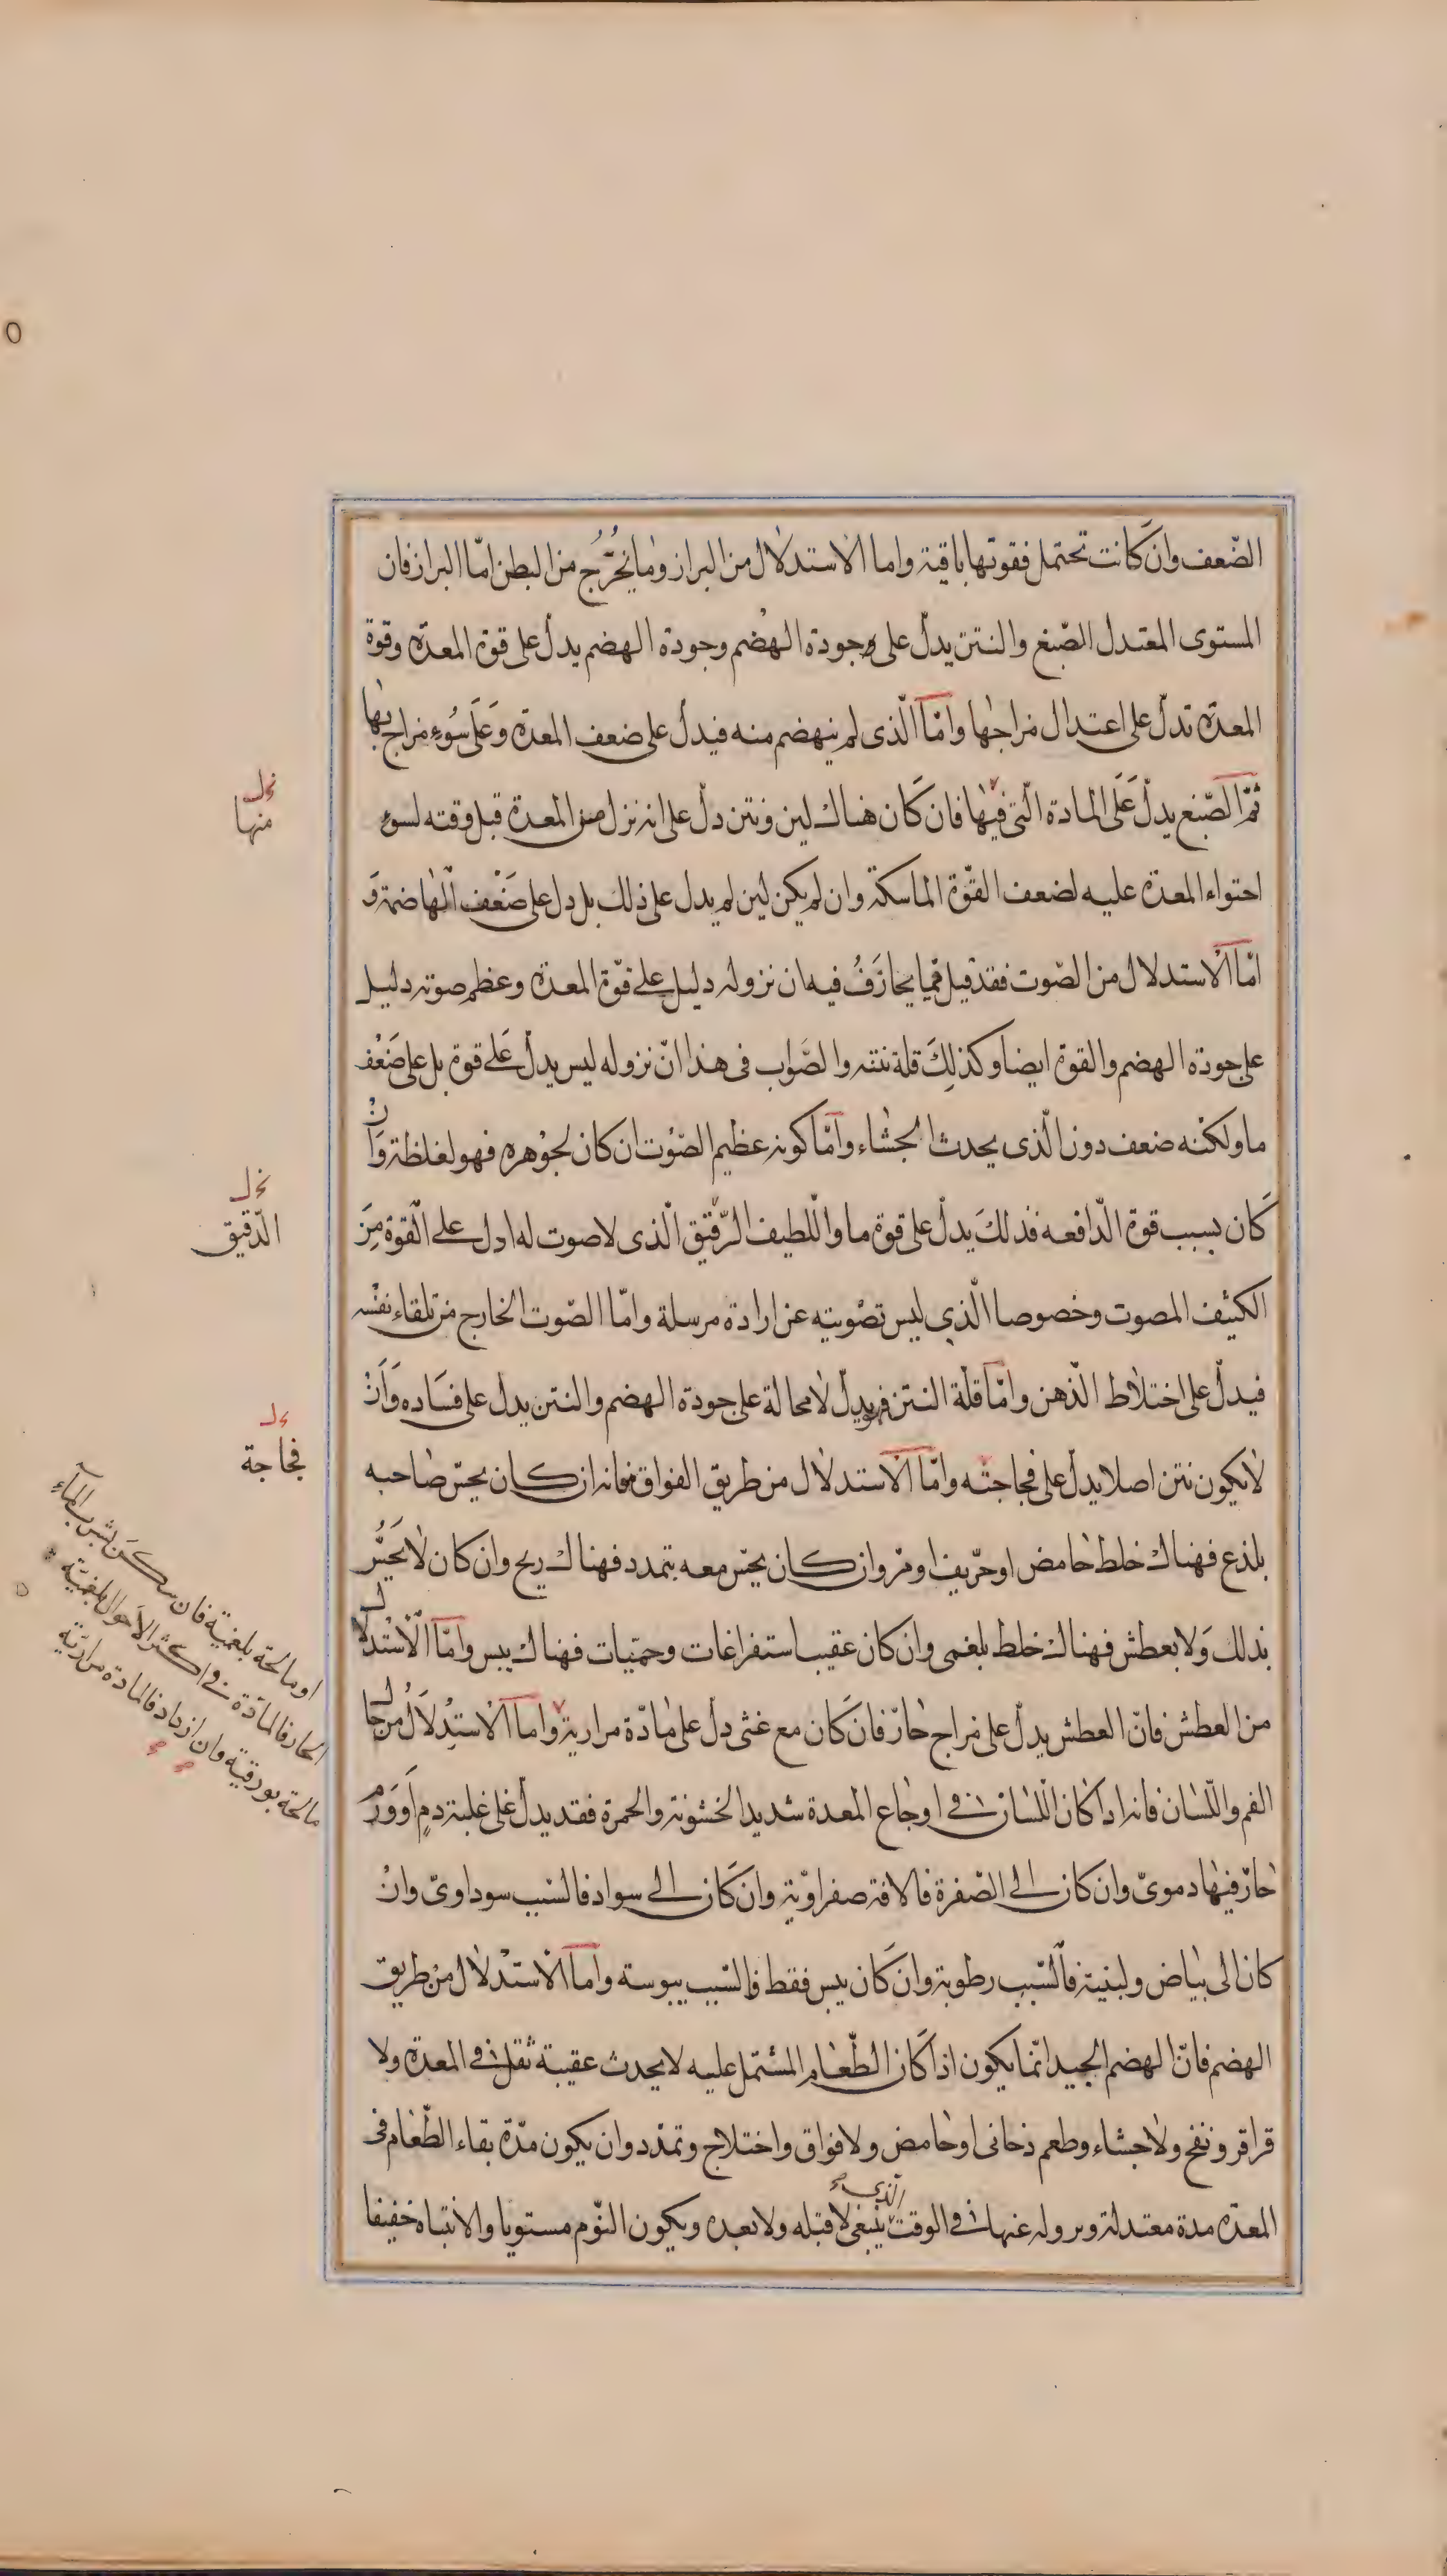 الضّعف وان كانت تحتمل فقوتها باقية واما الاستدلال من البراز وما يخرج من البطن امّا البراز فان
المستوى المعتدل الصّبغ والنتن يدلّ على جودة الهضم وجودة الهضم يدل على قوة المعدة وقوة
المعدة تدلّ على اعتدال مزاجها وامّا الّذى لم ينهضم منه فيدل على ضعف المعدة وَعَلَى سُوء مزاج بها
ثمّ الصّبغ يدلّ عَلَى المادة الّتى فيها فان كَان هناك لين ونتن دلّ على انه نزل من المعدة قبل وقته لسوء
احتواء المعدة عليه لضعف القوّة الماسكة وان لم يكن لين لم يدل على ذلك بل دل على ضَعْف الْهاضمة وَ
امّا الاستدلال من الصّوت فقد قيل فيما يجازَفُ فيه ان نزوله دليل على قوّة المعدة وعظم صوته دليل
على جودة الهضم والقوة ايضا وكذلِكَ قلة نتنه والصَّواب فى هذا انّ نزوله ليس يدلّ عَلى قوة بل على ضَعْف
ما ولكنّه ضعف دون الّذى يحدث الجشاء وامّا كونه عظيم الصّوْت ان كان لجوْهره فهو لغلظة وَانْ
كَان بسبب قوة الدّافعه فذلكَ يدلّ على قوة ما واللّطيف الرّقيق الّذى لا صوت له ادل على الْقوة مِنَ
الكثيف المصوت وخصوصا الّذى ليس تصْويته عن ارادة مرسلة وامّا الصّوت الخارج من تلقاء نفْسه
فيدلّ على اختلاط الذّهن وامّا قلّة النتن فيدلّ لا محالة على جودة الهضم والنتن يدل على فسَاده وَاَنْ
لا يكون نتن اصلا يدلّ على فجاجته وامّا الاستدلال من طريق الفواق فانه ان كان يحسّ صاحبه
بلذع فهناك خلط حامض او حرّيف او مرّ وان كان يحسّ معه بتمدد فهناك ريح وان كان لا يَحسُّ
بذلك وَلا بعطش فهناك خلط بلغمى وان كان عقيب استفراغات وحمّيات فهناك يبس وامّا الْاسْتدلال
من العطش فانّ العطش يدلّ على مزاج حارّ فان كَان مع غثى دلّ على مادّة مرارية واما الاستِدْلَالُ من حال
الفم واللّسان فانه اذا كان اللّسان فى اوجاع المعدة شديد الخشونة والحمرة فقد يدلّ على غلبة دمٍ اَوْ وَرَمٍ
حارّ فيها دموىّ وان كان الى الصّفرة فالافة صفراوّية وان كَان الى سواد فالسّبب سوداوىّ وانْ
كان الى بياض ولبنية فالسّبب رطوبة وان كَان يبس فقط فالسّبب يبوسة واما الاستدْلال من طريق
الهضم فانّ الهضم الجيد انّما يكون اذا كَان الطّعام المشتمل عليه لا يحدث عقيبة ثقلا فى المعدة ولا
قراقر ونفخ ولا جشاء وطعم دخانى او حامض ولا فواق واختلاج وتمدّد وان يكون مدّة بقاء الطّعام فى
المعدة مدة معتدلة ونزوله عنها فى الوقت الذى ينبغى لا قبله ولا بعده ويكون النّوم مستويا والانتباه خفيفا
منها
الدّقيق
فجاجة
او مالحة بلغمية فان سكَن بشرب المآءِ
الحار فالمادّة فى اكثر الاَحوال بلغميّة
مالحة بورقية وان ازداد فالمادة مراريّة